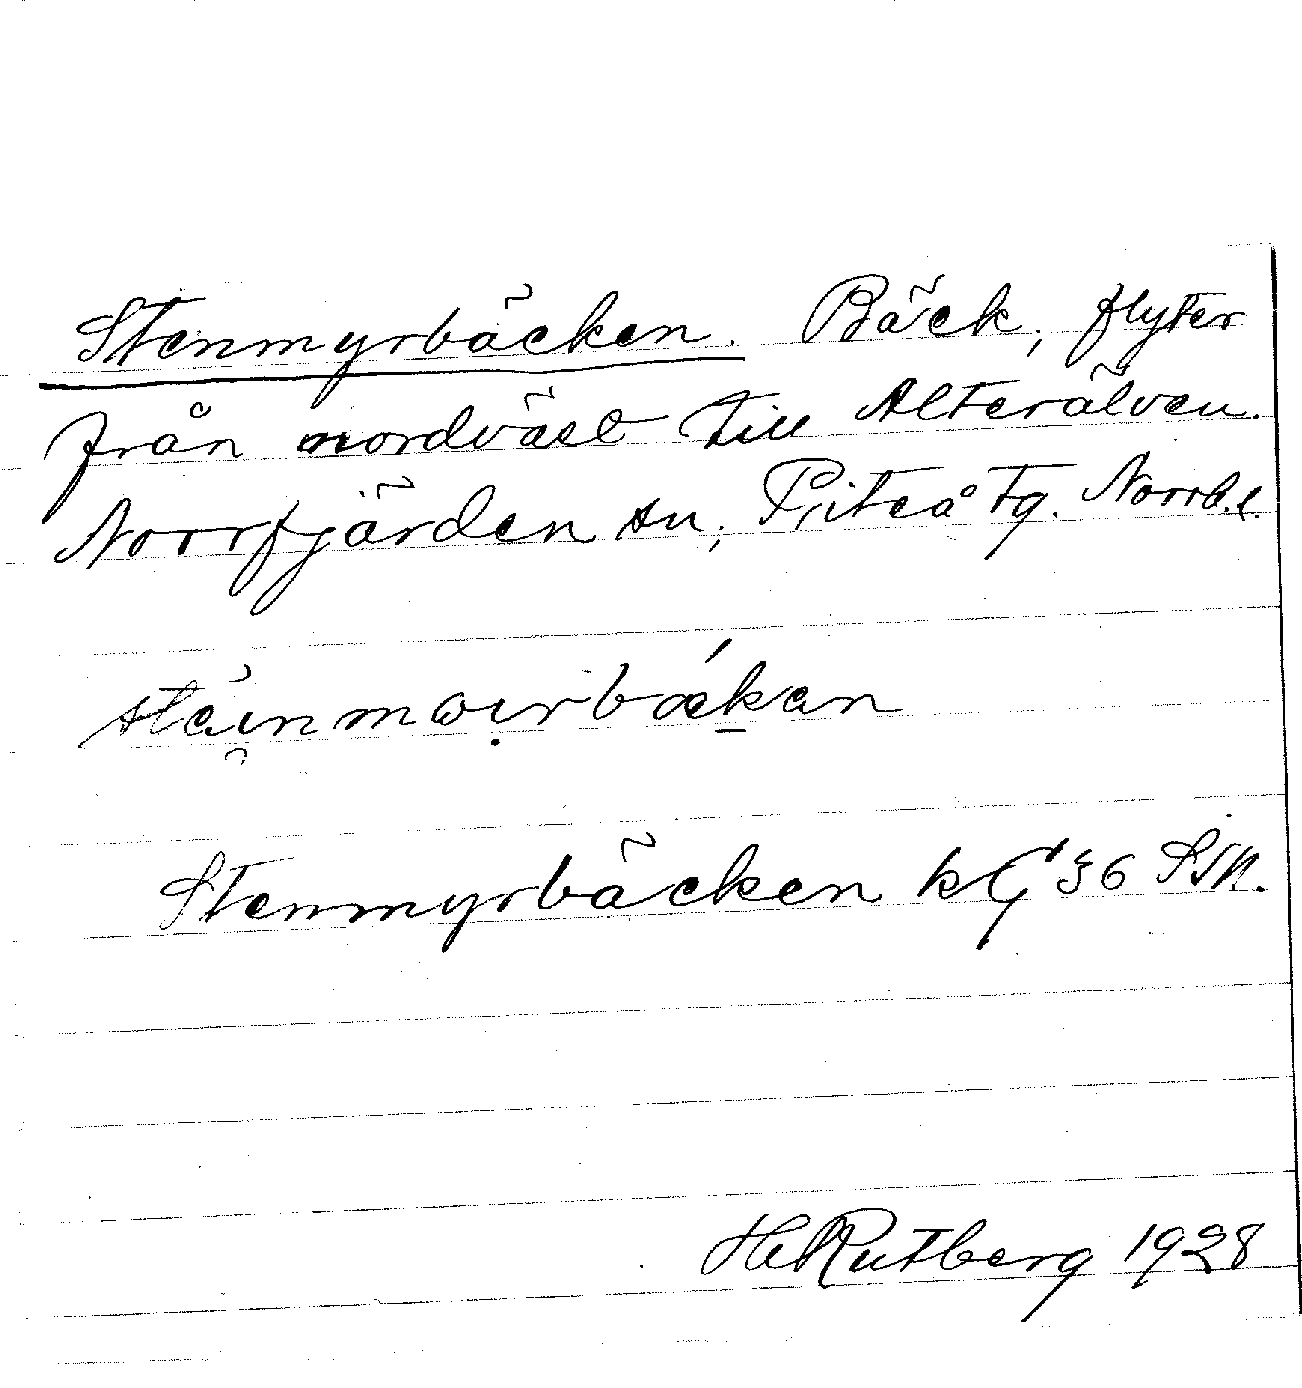 Stenmyrbäcken. Bäck, flyter
från nordväst till Alterälven.
Norrfjärden sn, Piteå tg. Norrb.l.
stäinmɷırbækan
Stenmyrbäcken k G 36 SSN.
H Rutberg 1928